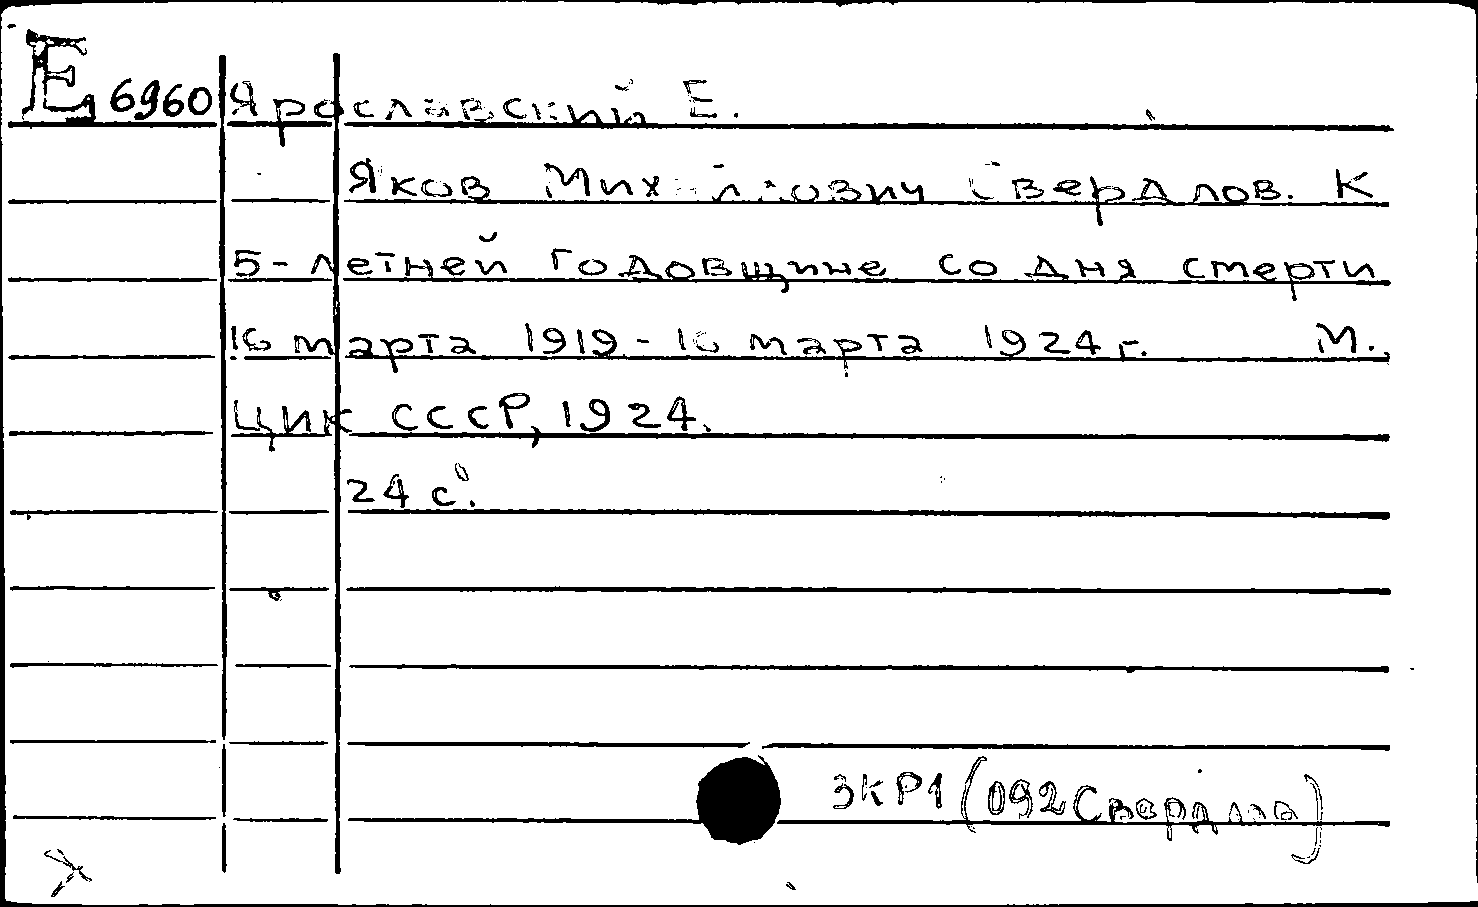 Е 6960 Ярославский Е.
Яков Михайлович Свердлов. К
5-летней годовщине со дня смерти
16 марта 1919-16 марта 1924 г. М.
ЦИК СССР, 1924.
24 с.
3КР1 (092 Свердлов)